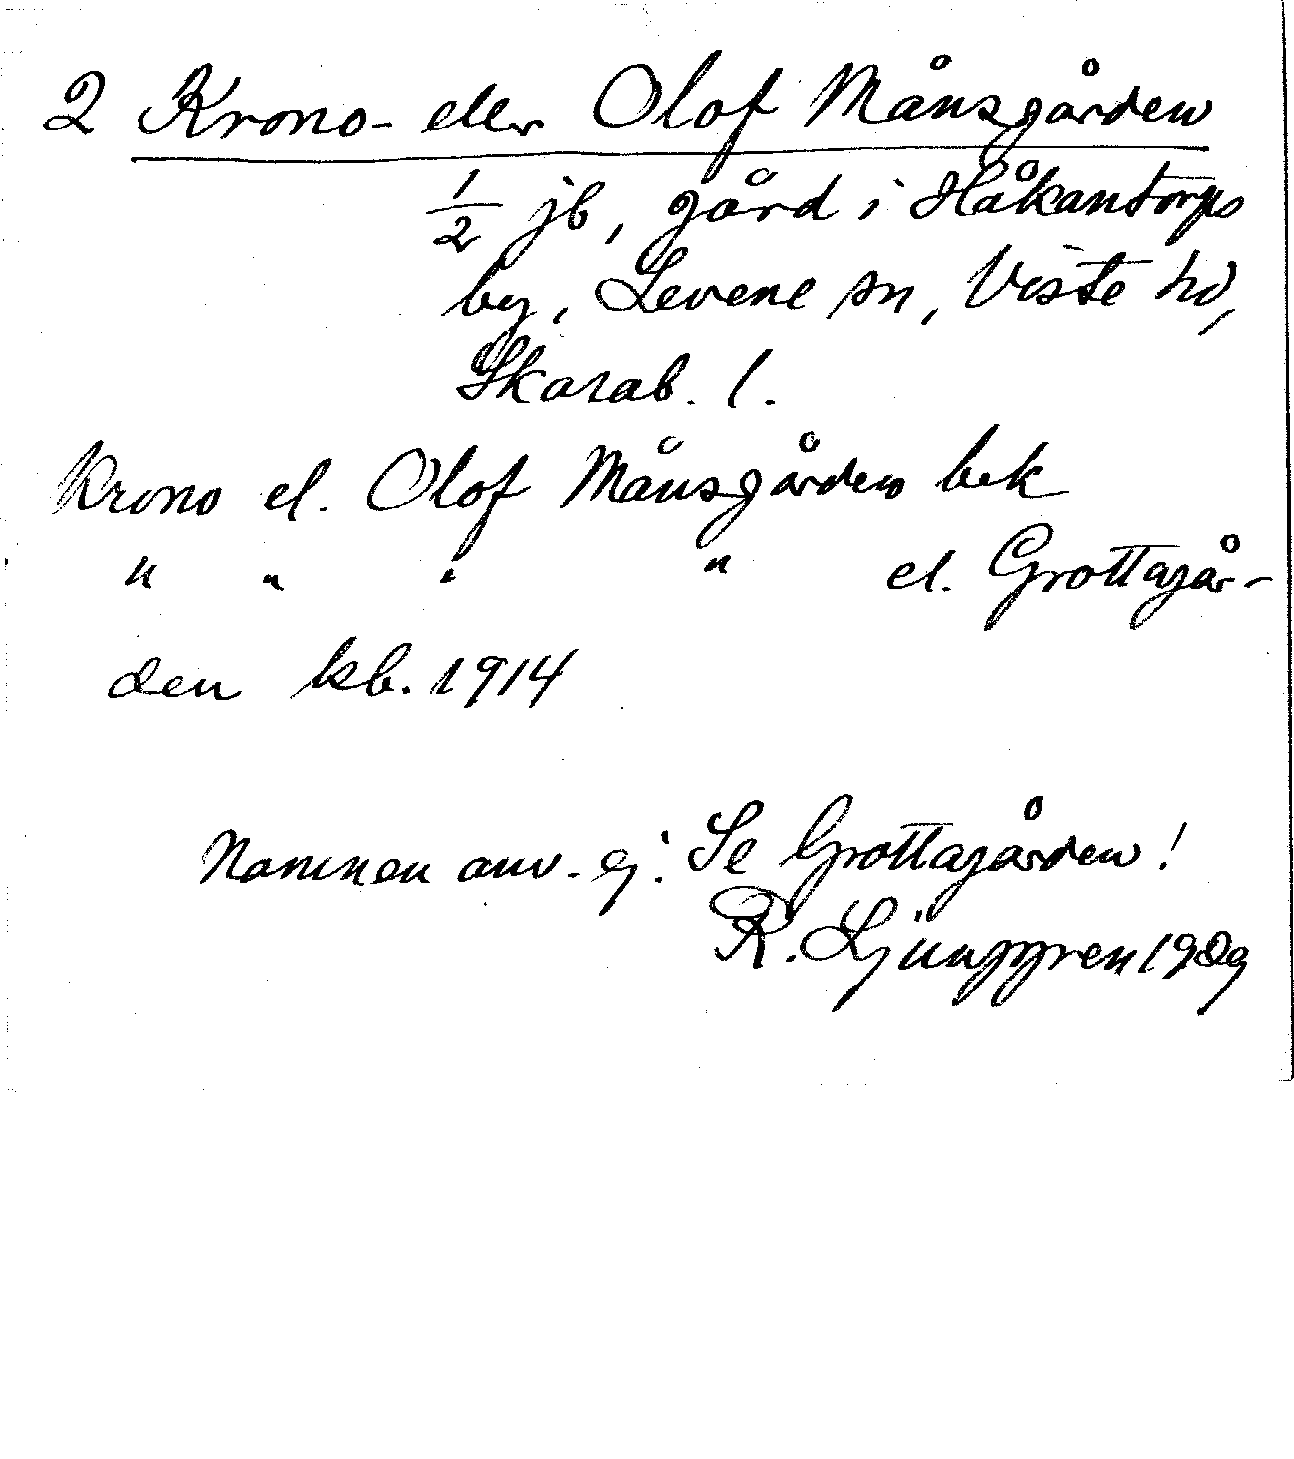 2 Krono- eller Olof Månsgården
1/2 jb, gård i Håkantorps
by, Levene sn, Viste hd,
Skarab. l.
Krono el. Olof Månsgården bek
" " " " el. Grottagår-
den kb. 1914
Namnen anv. ej. Se Grottagården!
R. Ljunggren 1929